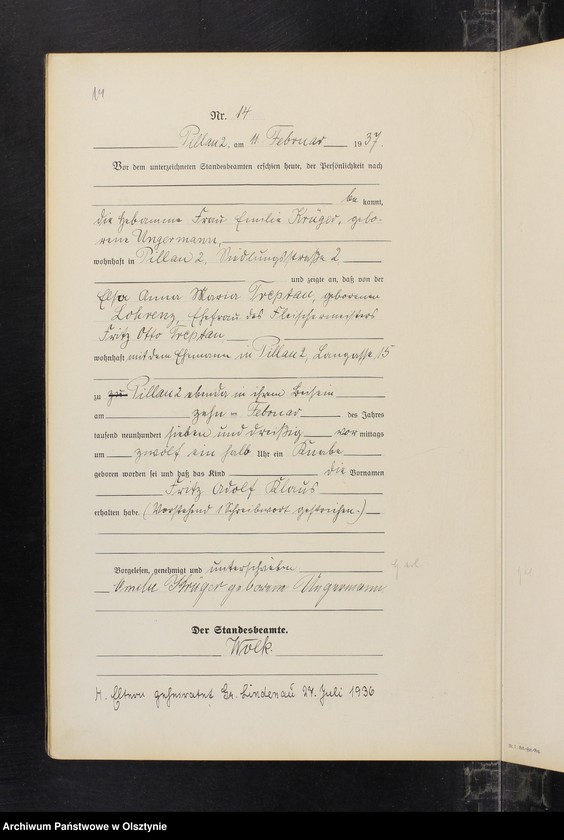 14
Nr. 14
Pillau 2, am 11. Februar 1937.
Vor dem unterzeichneten Standesbeamten erschien heute, der Persönlichkeit nach
be kannt,
die Hebamme Frau Emilie Krüger, gebo-
rene Ungermann,
wohnhaft in Pillau 2, Siedlungsstraße 2
und zeigte an, daß von der
Elsa Anna Maria Treptau, geborenen
Lohrenz, Ehefrau des Fleischermeisters
Fritz Otto Treptau
wohnhaft mit dem Ehemann in Pillau 2, Langgasse 15
zu zu Pillau 2 ebenda in ihrem Beisein
am zehn = Februar des Jahres
tausend neunhundert sieben und dreißig vor mittags
um zwölf ein halb Uhr ein Knabe
geboren worden sei und daß das Kind die Vornamen
Fritz Adolf Klaus
erhalten habe. (Vorstehend 1 Schreibwort gestrichen.)
Vorgelesen, genehmigt und unterschrieben
Emilie Krüger geborene Ungermann
Der Standesbeamte.
Wolk.
H. Eltern geheiratet Gr. Lindenau 24. Juli 1936
Archiwum Państwowe w Olsztynie